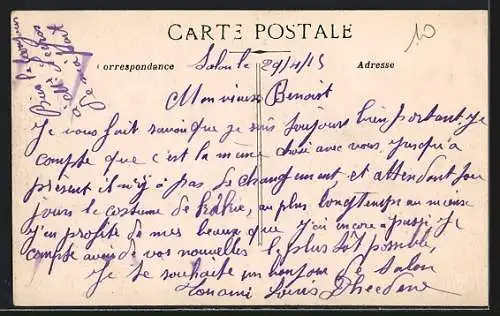 CARTE POSTALE
Correspondance
Adresse
Salon le 29/4/15
Mon vieux Benoist
Je vous fait savoir que je suis toujours bien portant, je
compte que c'est la même chose avec vous, jusqu'a
présent il n'y à pas de changement et attendant tou
jours le costume de au plus longtemps au mieux
j'en profite de mes beaux que j'ai encore à passé Je
compte avoir de vos nouvelles le plus tôt possible,
Je te souhaite un bonjour de Salon
Ton ami Louis
Bien le bonjour
a Mr